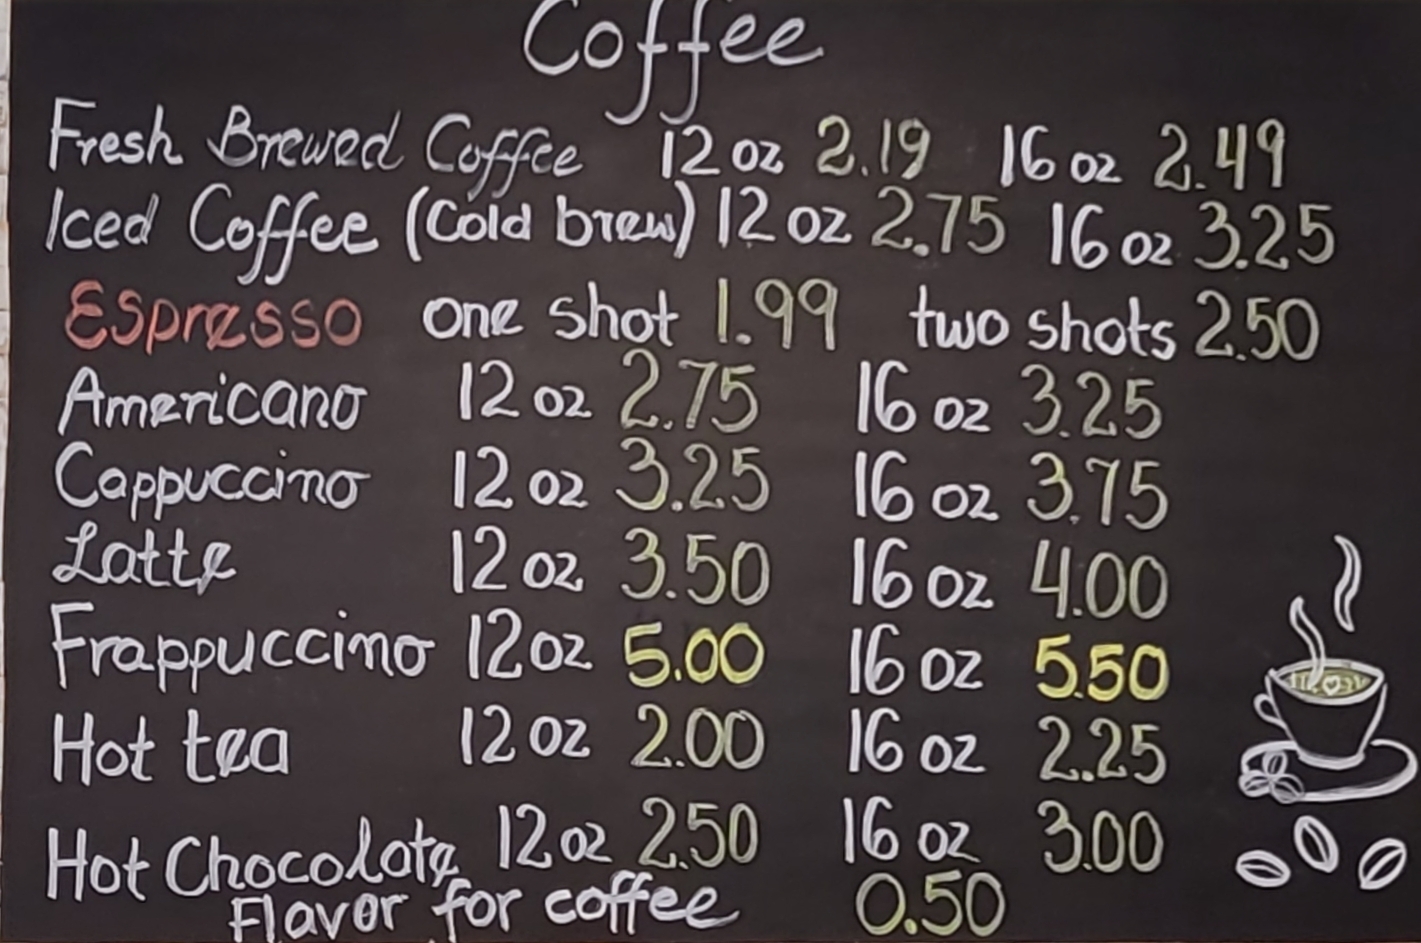 Coffee
Fresh Brewed Coffee 12 oz 2.19 16 oz 2.49
Iced Coffee (Cold brew) 12 oz 2.75 16 oz 3.25
Espresso one shot 1.99 two shots 2.50
Americano 12 oz 2.75 16 oz 3.25
Cappuccino 12 oz 3.25 16 oz 3.75
Latte 12 oz 3.50 16 oz 4.00
Frappuccino 12 oz 5.00 16 oz 5.50
Hot tea 12 oz 2.00 16 oz 2.25
Hot Chocolate 12 oz 2.50 16 oz 3.00
Flavor for coffee 0.50